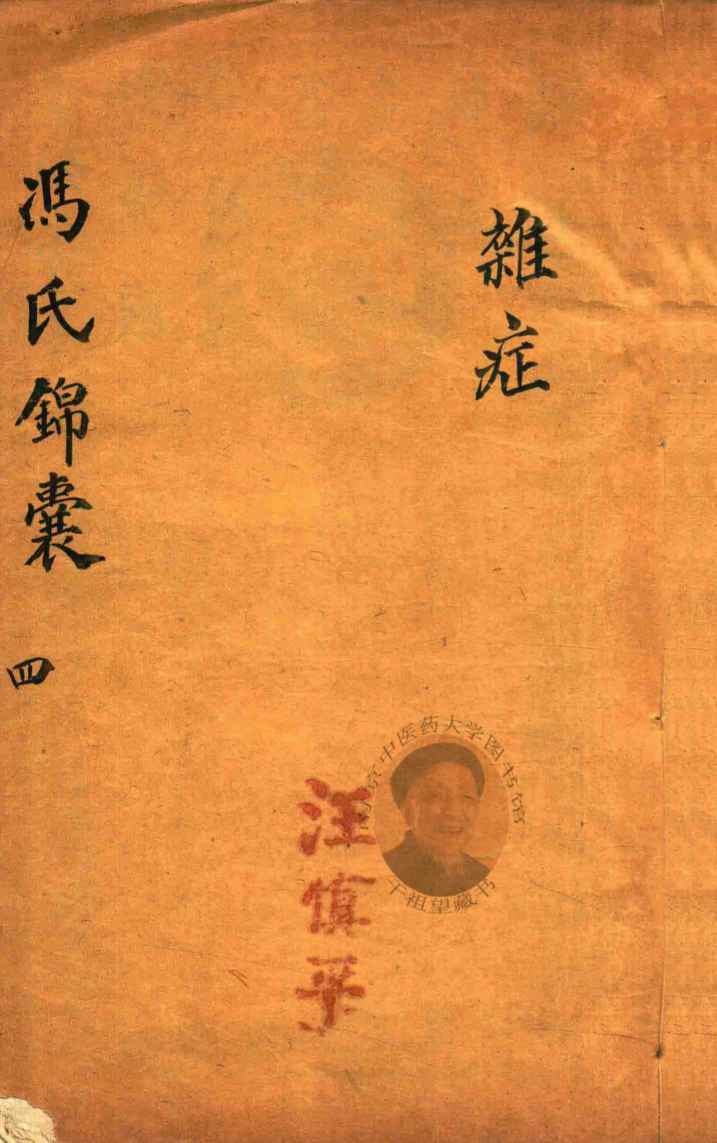 雜症
馮氏錦囊 四
南京中医药大学图书馆
干祖望藏书
汪慎平